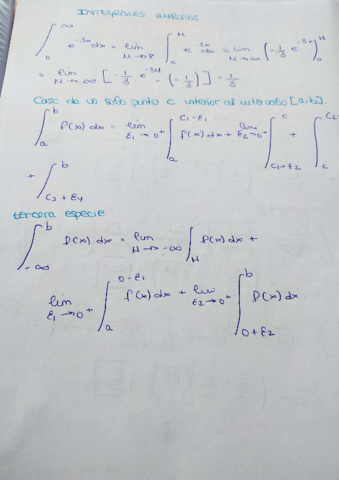 INTEGRALES IMPROPIAS
∫₀^∞ e^{-3x} dx = lim_{M→∞} ∫₀^M e^{-3x} dx = lim_{M→∞} (-1/3 e^{-3x})₀^M
= lim_{M→∞} [-1/3 e^{-3M} - (-1/3)] = 1/3
Caso de un solo punto c interior al intervalo [a,b].
∫_a^b f(x) dx = lim_{ε₁→0⁺} ∫_a^{c₁-ε₁} f(x) dx + lim_{ε₂→0⁺} ∫_{c₁+ε₂}^c + ∫_c^{c₂
+ ∫_{c₂+ε₄}^b
tercera especie.
∫_{-∞}^b f(x) dx = lim_{M→-∞} ∫_M f(x) dx +
lim_{ε₁→0⁺} ∫_a^{0-ε₁} f(x) dx + lim_{ε₂→0⁺} ∫_{0+ε₂}^b f(x) dx